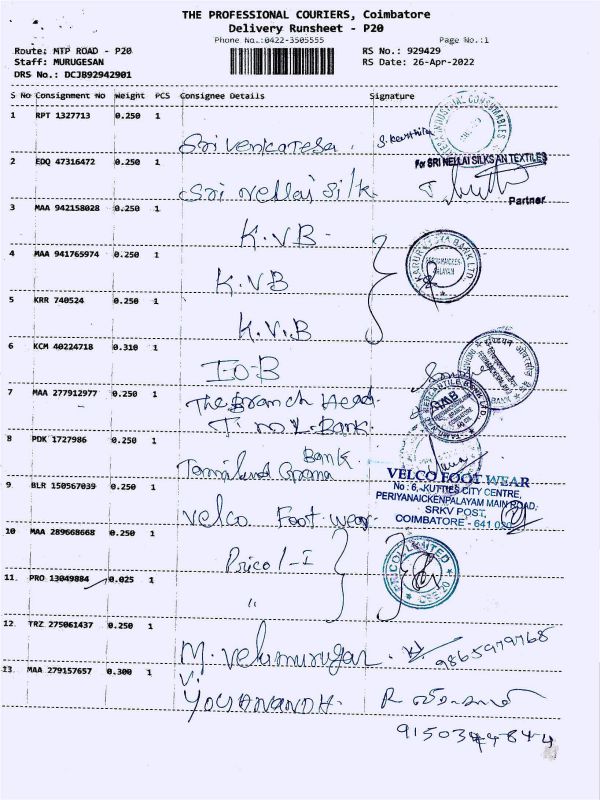 THE PROFESSIONAL COURIERS, Coimbatore
Delivery Runsheet - P20
Phone No.:0422-3505555
Page No.:1
Route: MTP ROAD - P20
RS No.: 929429
Staff: MURUGESAN
RS Date: 26-Apr-2022
DRS No.: DCJB92942901
S No Consignment No Weight PCS Consignee Details Signature
1 RPT 1327713 0.250 1
Sri Venkatesa.
2 EDQ 47316472 0.250 1
For SRI NELLAI SILKS AN TEXTILES
Sri Nellai Silk
Partner
3 MAA 942158028 0.250 1
K.VB
4 MAA 941765974 0.250 1
KARUR VYSYA BANK LTD
K.VB
5 KRR 740524 0.250 1
K.V.B
6 KCM 40224718 0.310 1
I-O-B
7 MAA 277912977 0.250 1
The Branch Head.
Bank
TAMILNAD MERCANTILE BANK LTD.
TMB
8 PDK 1727986 0.250 1
Bank
Grama
VELCO FOOT WEAR
No : 6, KUTTIES CITY CENTRE,
PERIYANAICKENPALAYAM MAIN ROAD,
SRKV POST,
COIMBATORE - 641 020
9 BLR 150567039 0.250 1
Velco Foot wear
10 MAA 289668668 0.250 1
Pricol-I
PRICOL LIMITED
11. PRO 13049884 0.025 1
"
12. TRZ 275061437 0.250 1
M. Velumurugan
9865979768
13. MAA 279157657 0.300 1
V.
YOGANANDH.
9150344844